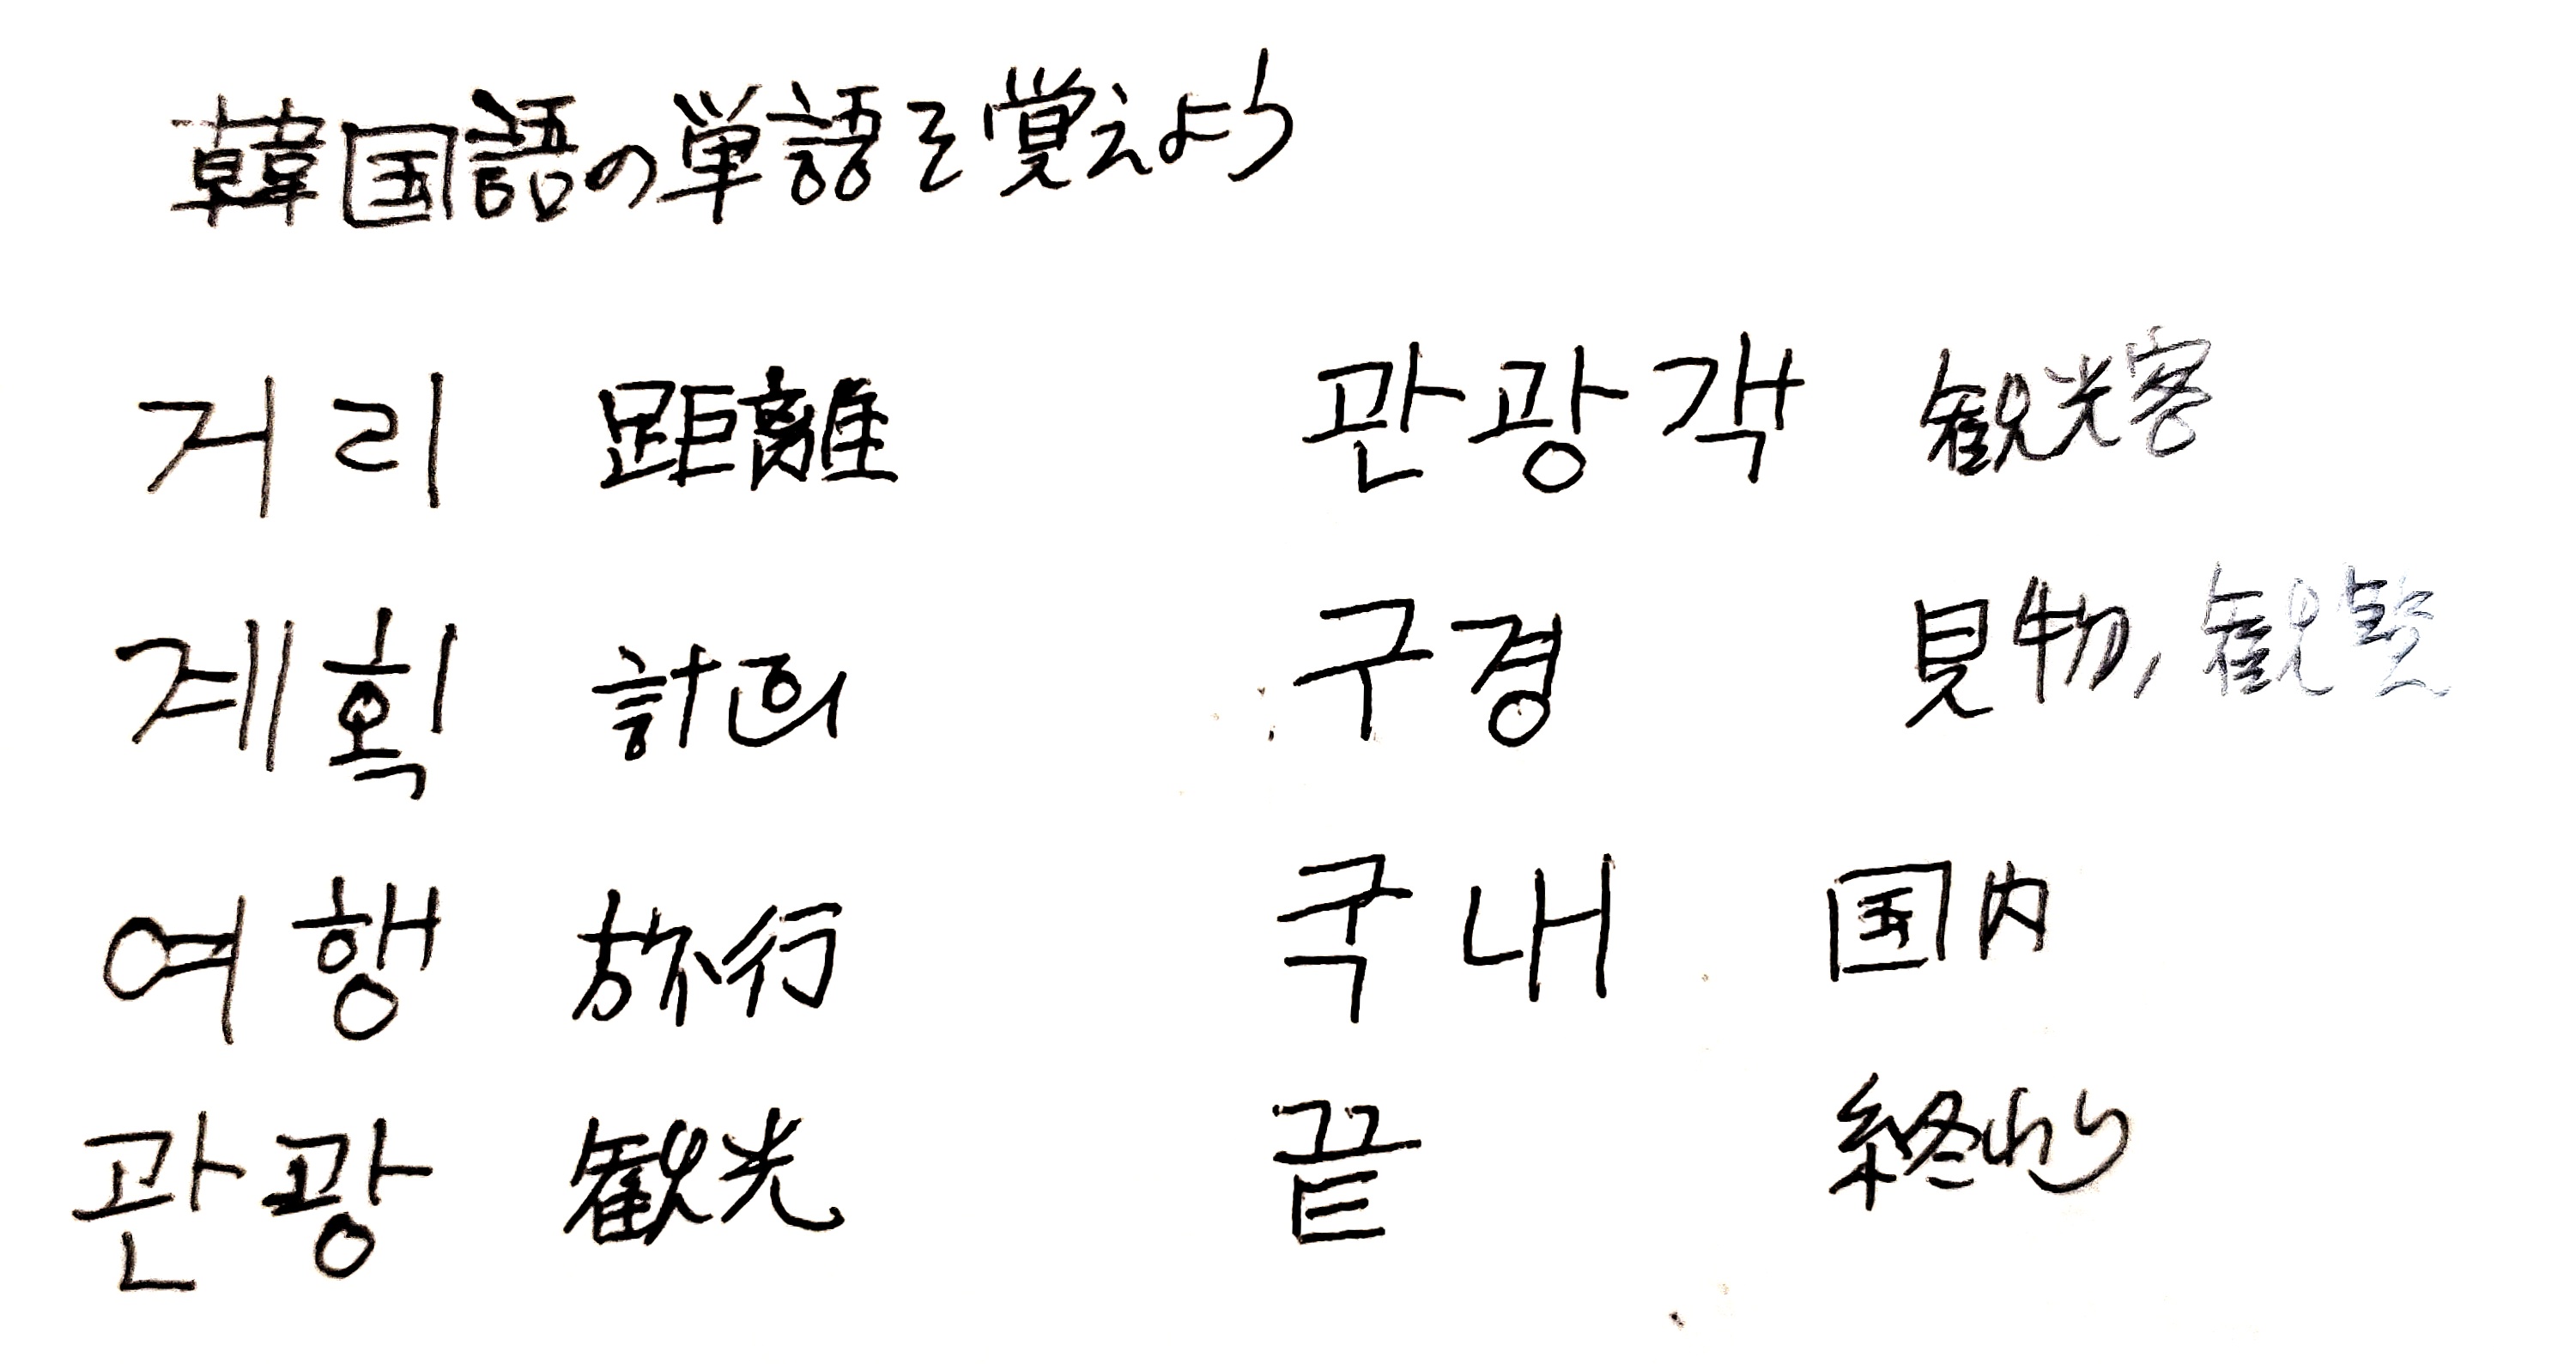 韓国語の単語を覚えよう
거리 距離
계획 計画
여행 旅行
관광 観光
관광객 観光客
구경 見物, 観覧
국내 国内
끝 終わり